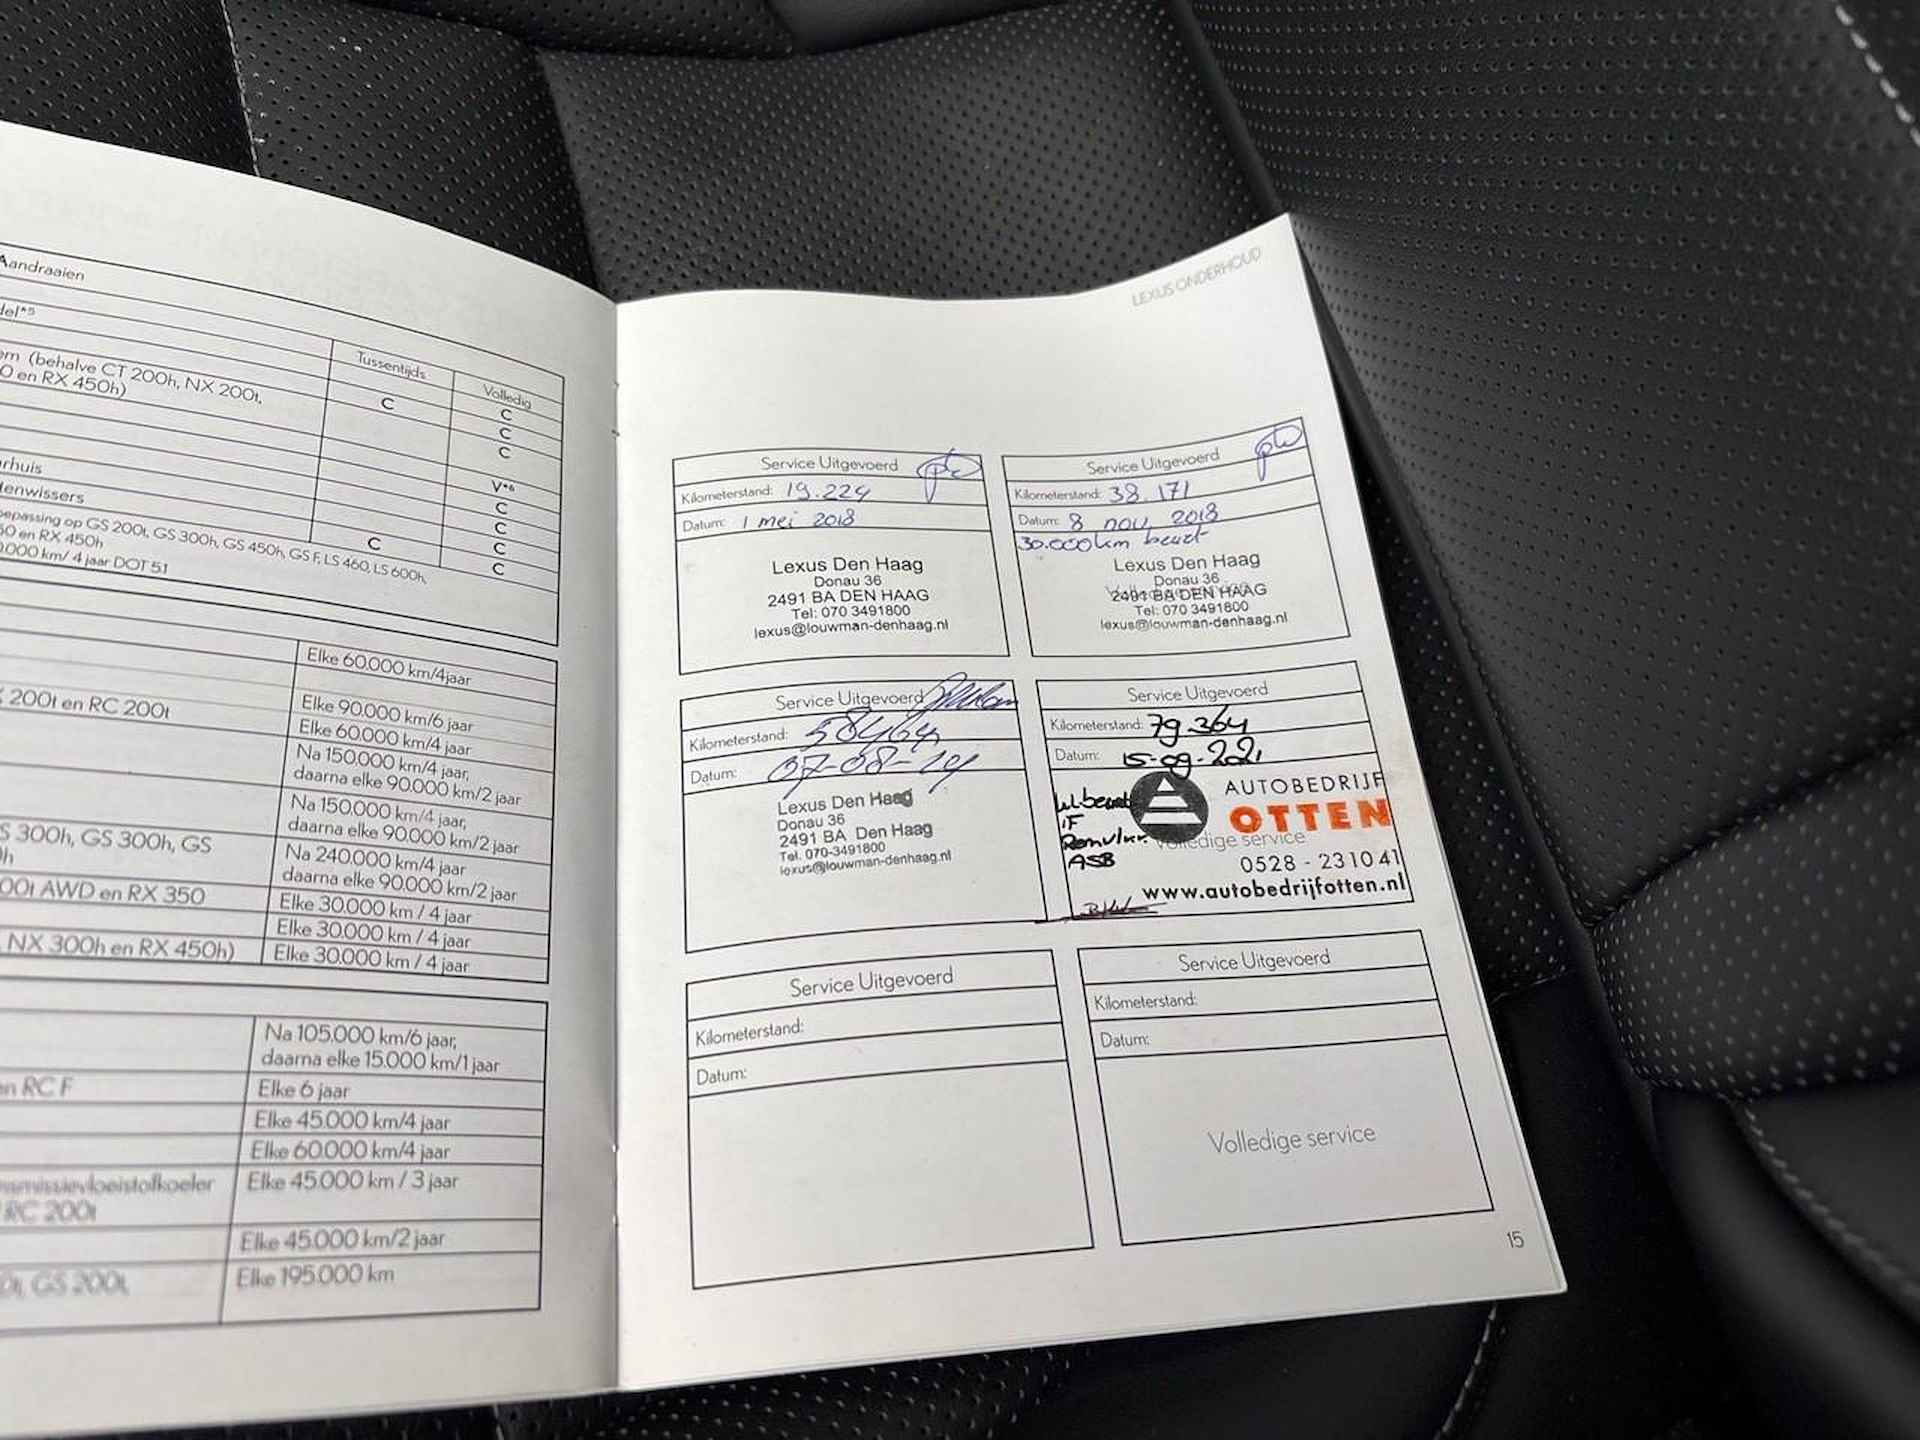 Aandraaien
del*5
Tussentijds
Volledig
em (behalve CT 200h, NX 200t,
0 en RX 450h)
C
C
C
C
rhuis
V*6
enwissers
C
C
epassing op GS 200t, GS 300h, GS 450h, GS F, LS 460, LS 600h,
50 en RX 450h
C
C
0.000 km/ 4 jaar DOT 5.1
C
Elke 60.000 km/4jaar
200t en RC 200t
Elke 90.000 km/6 jaar
Elke 60.000 km/4 jaar
Na 150.000 km/4 jaar,
daarna elke 90.000 km/2 jaar
Na 150.000 km/4 jaar,
daarna elke 90.000 km/2 jaar
S 300h, GS 300h, GS
0h
Na 240.000 km/4 jaar
daarna elke 90.000 km/2 jaar
00t AWD en RX 350
Elke 30.000 km / 4 jaar
Elke 30.000 km / 4 jaar
, NX 300h en RX 450h)
Elke 30.000 km / 4 jaar
Na 105.000 km/6 jaar,
daarna elke 15.000 km/1 jaar
en RC F
Elke 6 jaar
Elke 45.000 km/4 jaar
Elke 60.000 km/4 jaar
nsmissievloeistofkoeler
RC 200t
Elke 45.000 km / 3 jaar
Elke 45.000 km/2 jaar
0t, GS 200t,
Elke 195.000 km
LEXUS ONDERHOUD
Service Uitgevoerd
Kilometerstand: 19.224
Datum: 1 mei 2018
Lexus Den Haag
Donau 36
2491 BA DEN HAAG
Tel: 070 3491800
lexus@louwman-denhaag.nl
Service Uitgevoerd
Kilometerstand: 38.171
Datum: 8 nov 2018
30.000 km beurt
Lexus Den Haag
Donau 36
2491 BA DEN HAAG
Tel: 070 3491800
lexus@louwman-denhaag.nl
Service Uitgevoerd
Kilometerstand: 58464
Datum: 07-08-19
Lexus Den Haag
Donau 36
2491 BA Den Haag
Tel. 070-3491800
lexus@louwman-denhaag.nl
Service Uitgevoerd
Kilometerstand: 79.364
Datum: 15-09-2021
AUTOBEDRIJF
OTTEN
Volledige service
0528 - 231041
www.autobedrijfotten.nl
Service Uitgevoerd
Kilometerstand:
Datum:
Service Uitgevoerd
Kilometerstand:
Datum:
Volledige service
15